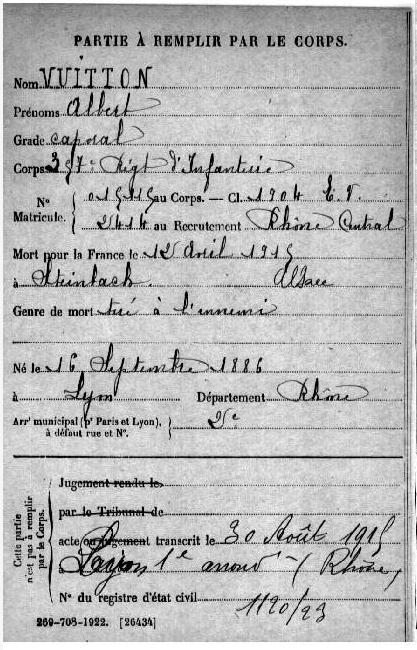 PARTIE À REMPLIR PAR LE CORPS.
Nom VUITTON
Prénoms Albert
Grade caporal
Corps 357e Régt d'Infanterie
N° Matricule. { 01515 au Corps. — Cl. 1904 E.V.
2414 au Recrutement Rhône Central
Mort pour la France le 12 Avril 1915
à Steinbach. Alsace
Genre de mort tué à l'ennemi
Né le 16 Septembre 1886
à Lyon Département Rhône
Arrt municipal (pr Paris et Lyon), à défaut rue et N°. } 2e
Cette partie n'est pas à remplir par le Corps.
Jugement rendu le
par le Tribunal de
acte ou jugement transcrit le 30 Août 1915
à Lyon 1e arrond (Rhône)
N° du registre d'état civil 1120/23
269-708-1922. [26434]